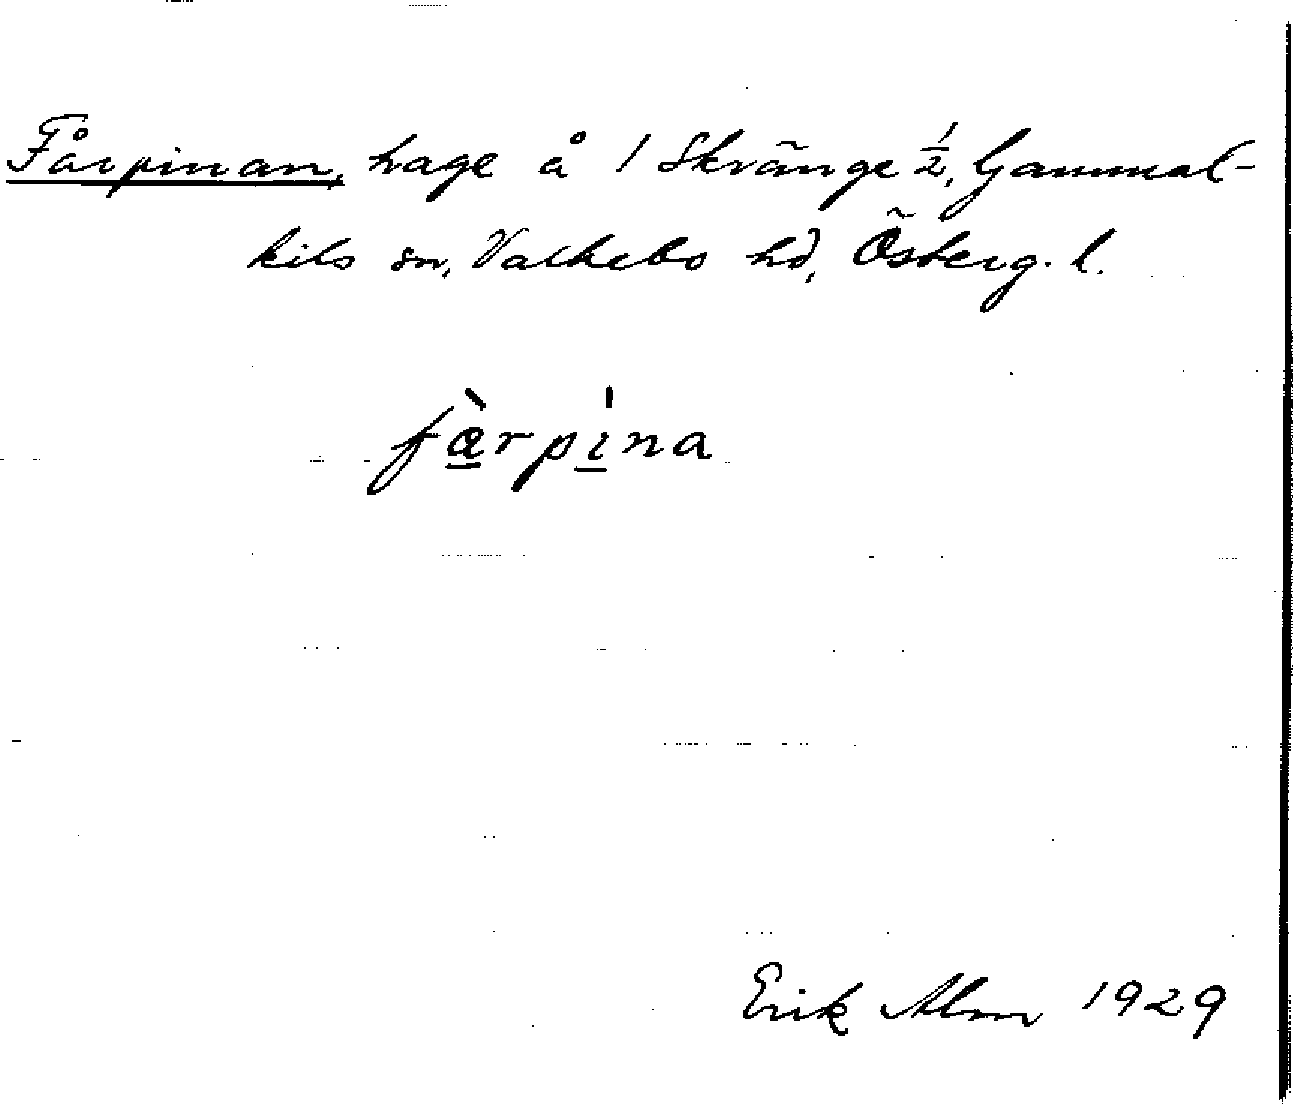 Fårpinan, hage å 1 Skränge 1/2, Gammal-
kils sn, Valkebo hd, Österg. l.
fàrpina
Erik Alm 1929